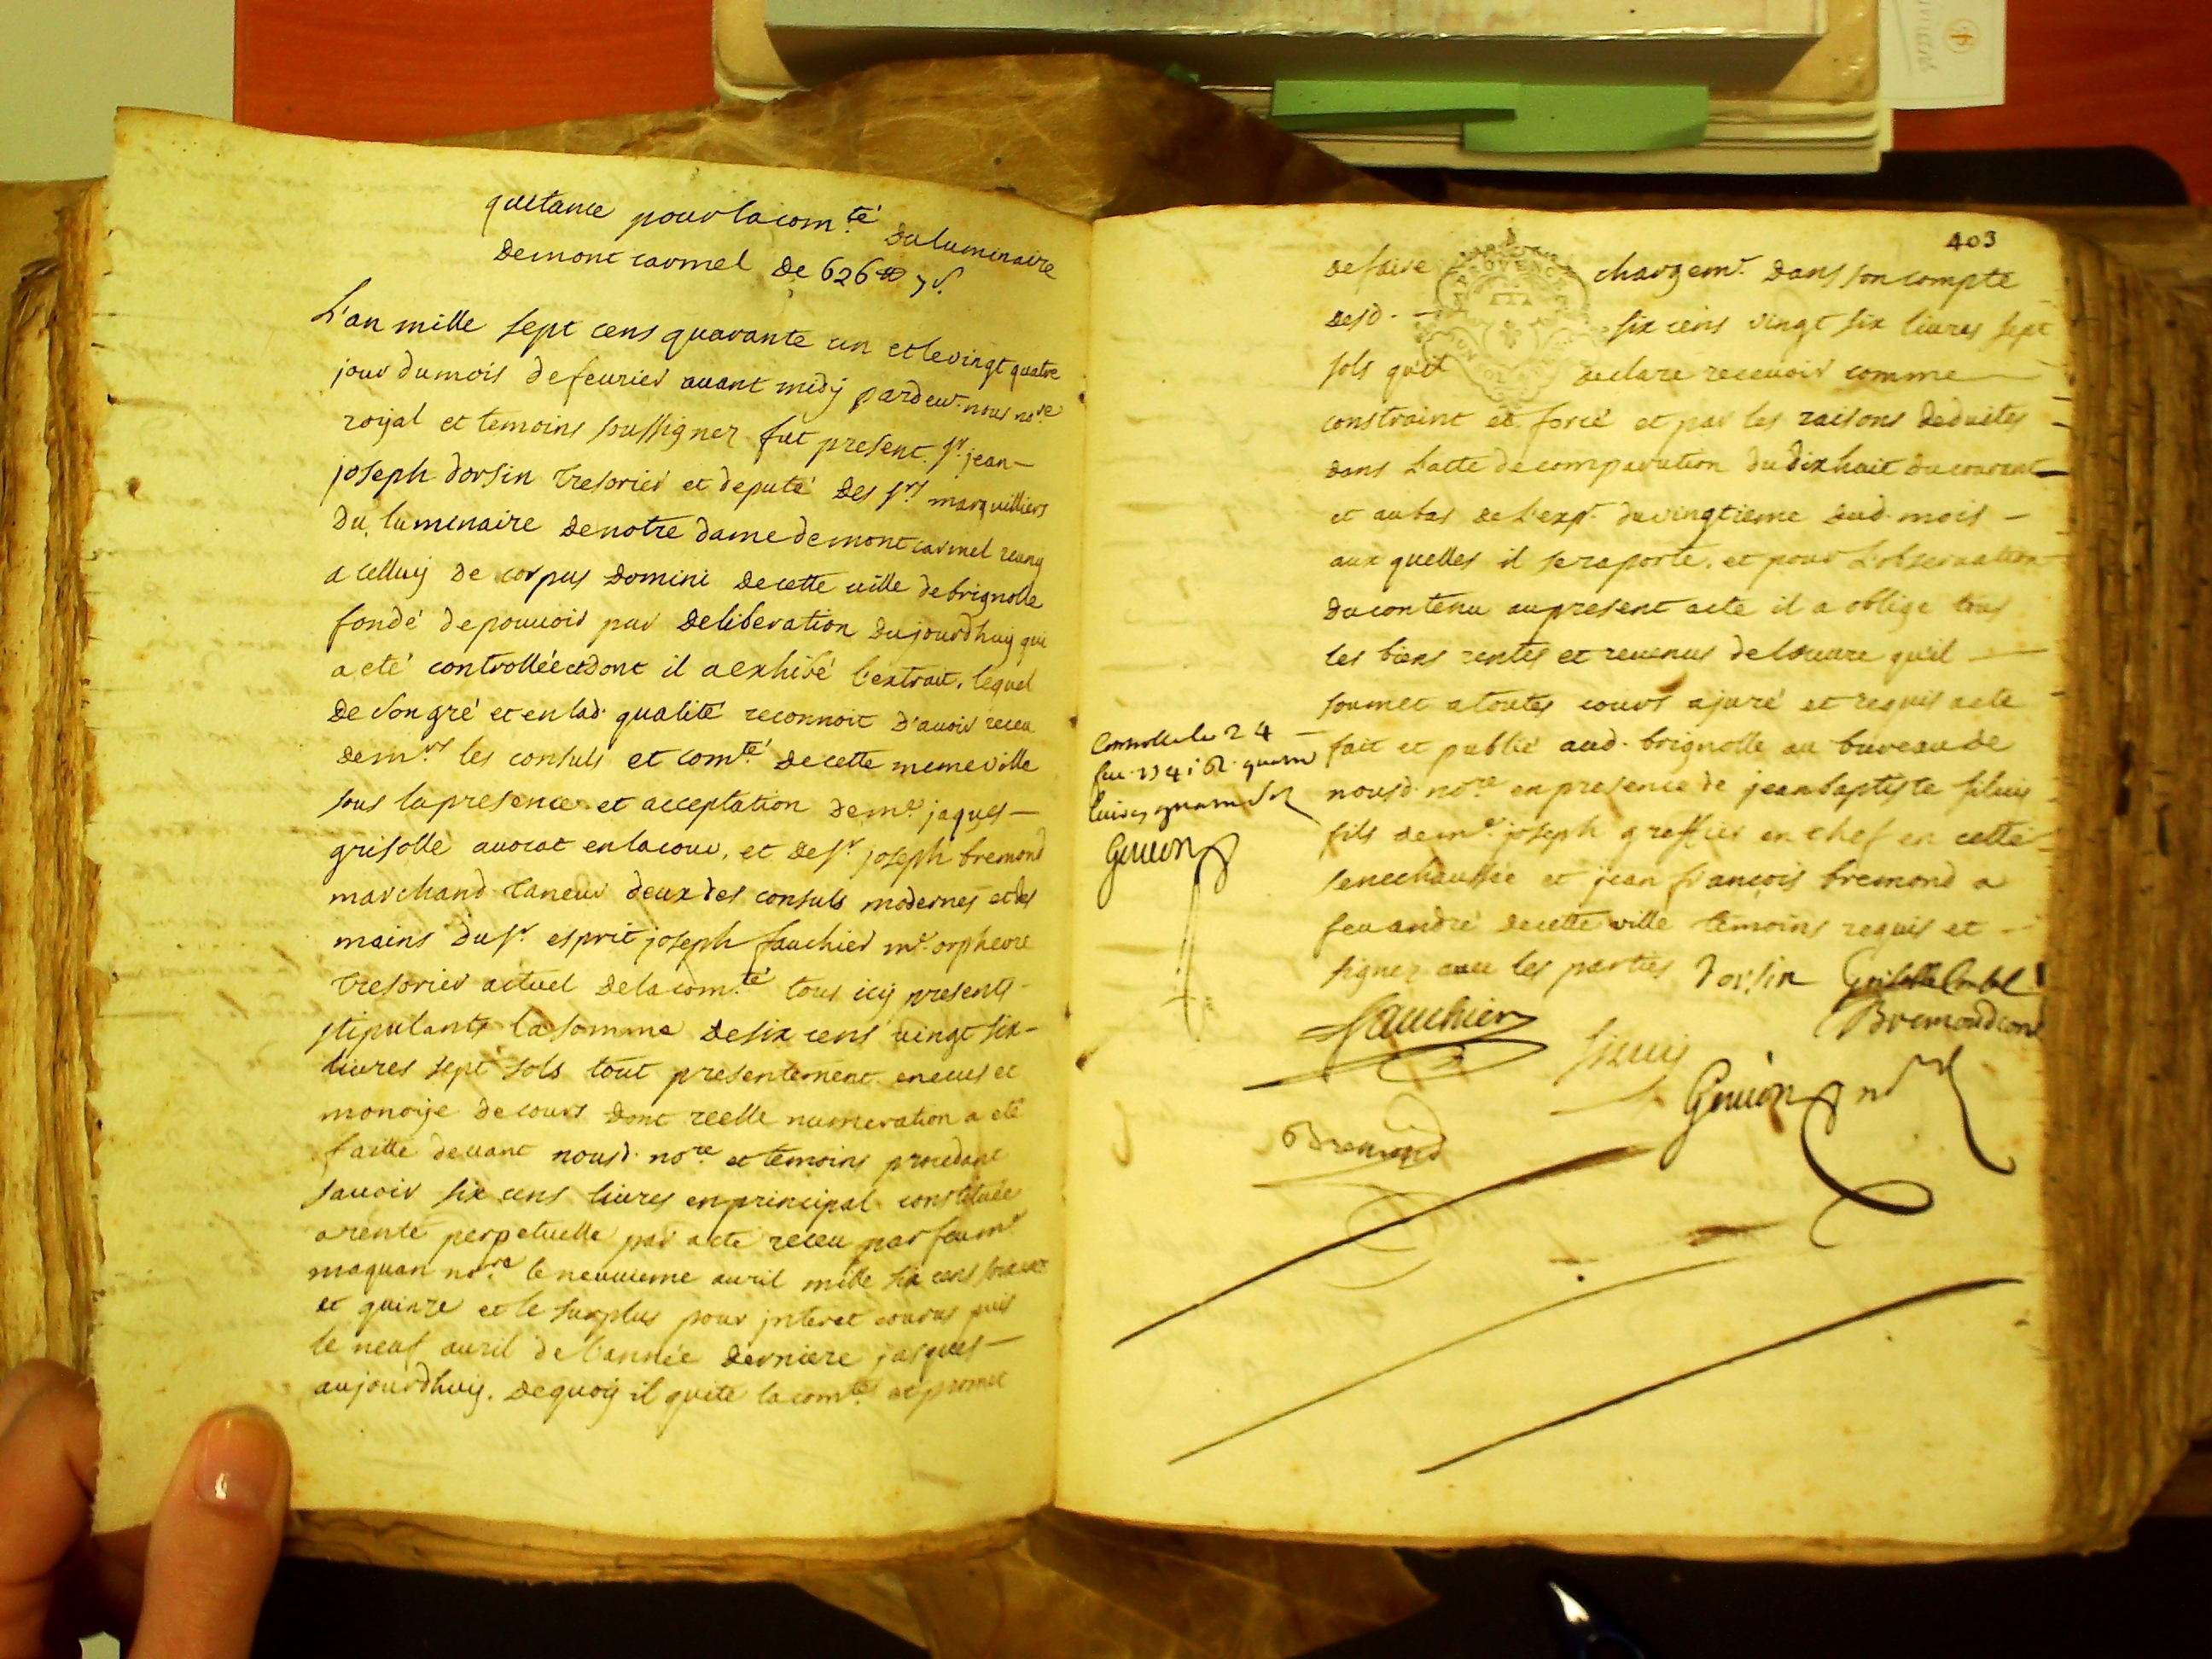 quittance pour la com.té du luminaire
de mont carmel de 626 ₶ 7 s.
L'an mille sept cens quarante un et le vingt quatre
jour du mois de feurier auant midy pardeu.t nous no.re
royal et temoins soussignez fut present s.r jean
joseph dorsin tresorier et deputé des s.rs marguilliers
du luminaire de notre dame de mont carmel reuny
a celluy de corpus domini de cette uille de brignolle
fondé de pouuoir par deliberation du jourdhuy qui
a eté controllée et dont il a exhibé l'extrait, lequel
de son gré et en lad. qualité reconnoit d'auoir receu
de m.rs les consuls et com.té de cette meme ville
sous la presence et acceptation de m.e jaques
grisolle auocat en la cour, et de s.r joseph bremond
marchand taneur deux des consuls modernes et des
mains du s.r esprit joseph fauchier m.e orpheure
tresorier actuel de la com.té tous icy presents
stipulants la somme de six cens uingt six
liures sept sols tout presentement en ecus et
monoye de cours dont reelle numeration a eté
faitte deuant nousd. no.re et temoins procedant
sauoir six cens liures en principal constituée
a rente perpetuelle par acte receu par feu m.e
maquan no.re le neuuieme auril mille six cens soixante
et quinze et le surplus pour jnteret courus puis
le neuf auril de l'année derniere jusques
aujourdhuy. de quoy il quite la com.té et promet
403
de faire chargem.t dans son compte
desd. six cens vingt six liures sept
sols qu'il declare receuoir comme
constraint et forcé et par les raisons deduites
dans l'acte de comparution du dixhuit du courant
et au bas de l'exp.t du vingtieme dud. mois
aux quelles il se raporte, et pour l'obseruation
du contenu au present acte il a obligé tous
les biens rentes et reuenus de louure qu'il
soumet a toutes cours a juré et requis acte
fait et publié aud. brignolle au bureau de
nousd. no.re en presence de jean baptiste siluy
fils de m.e joseph greffier en chef en cette
senechaussée et jean françois bremond a
feu andré de cette ville temoins requis et
signez auec les parties dorsin Grisolle Consul
Controllé le 24
feu. 1741
Guion
Fauchier
Siluy
Bremond cons
Guion no.re
Bremond